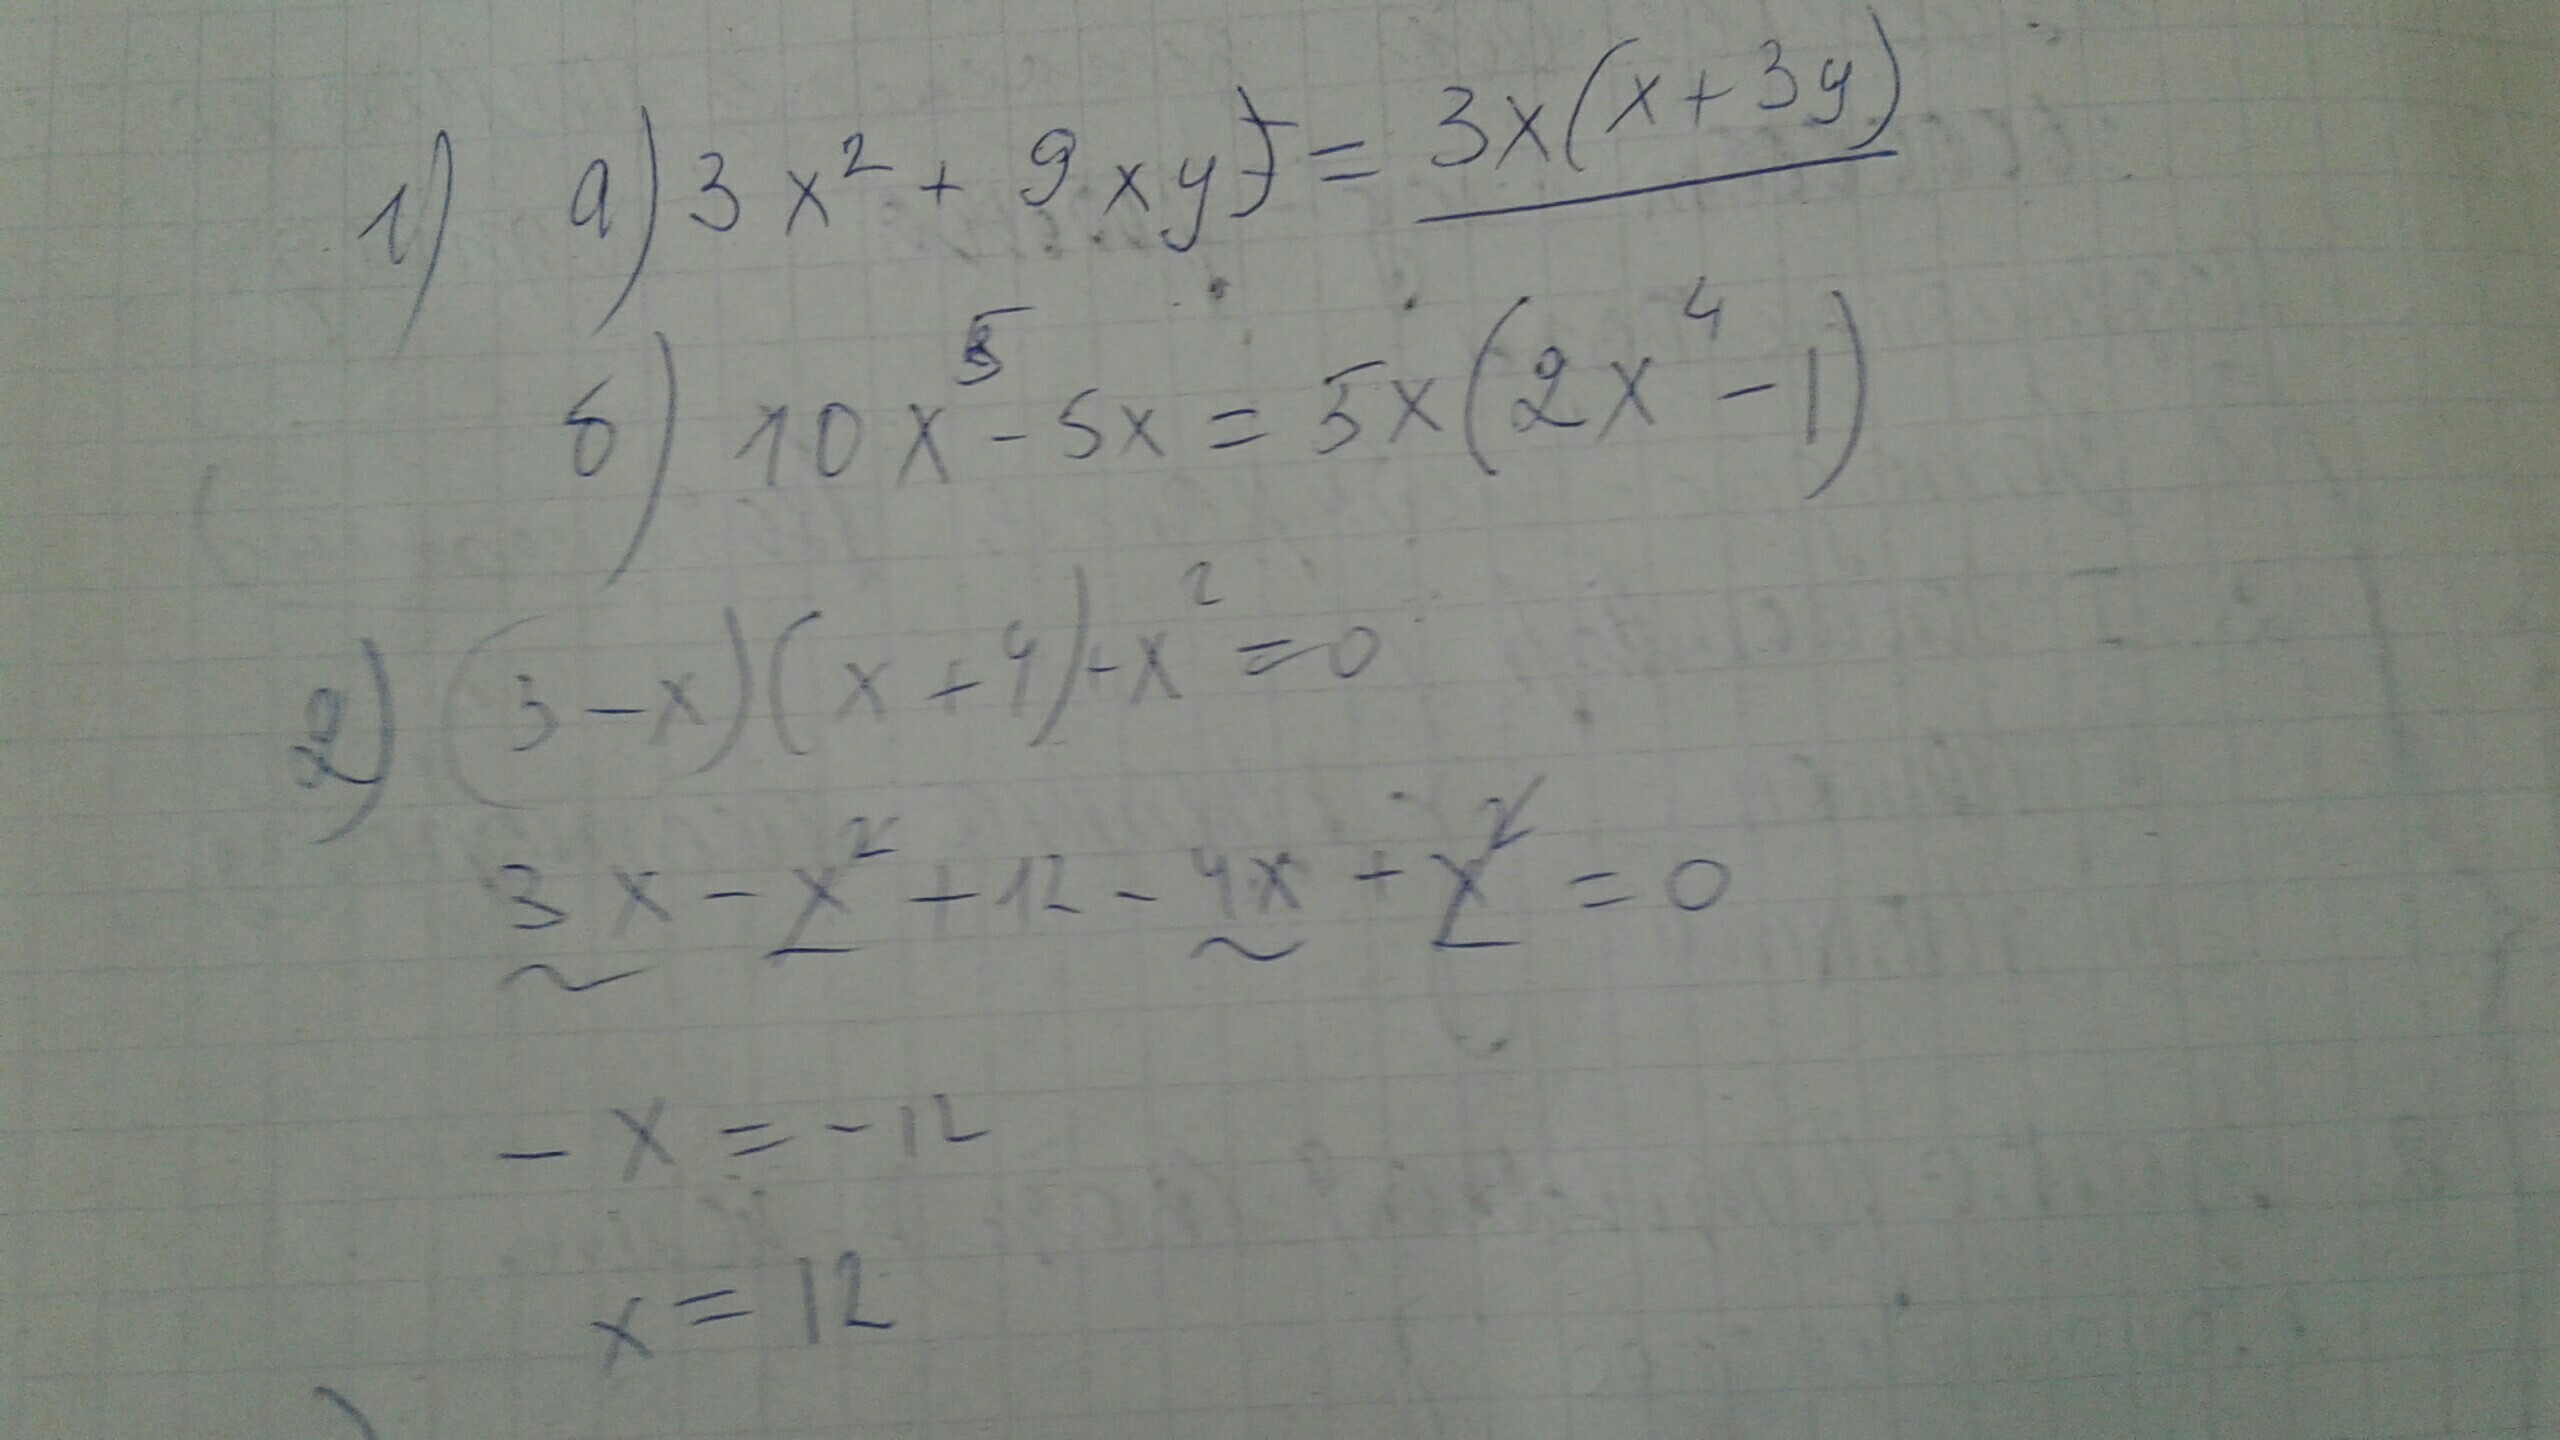 1) а) 3x² + 9xy = 3x(x+3y)
б) 10x⁵ - 5x = 5x(2x⁴ - 1)
2) (3-x)(x+4)+x² = 0
3x - x² + 12 - 4x + x² = 0
- x = -12
x = 12